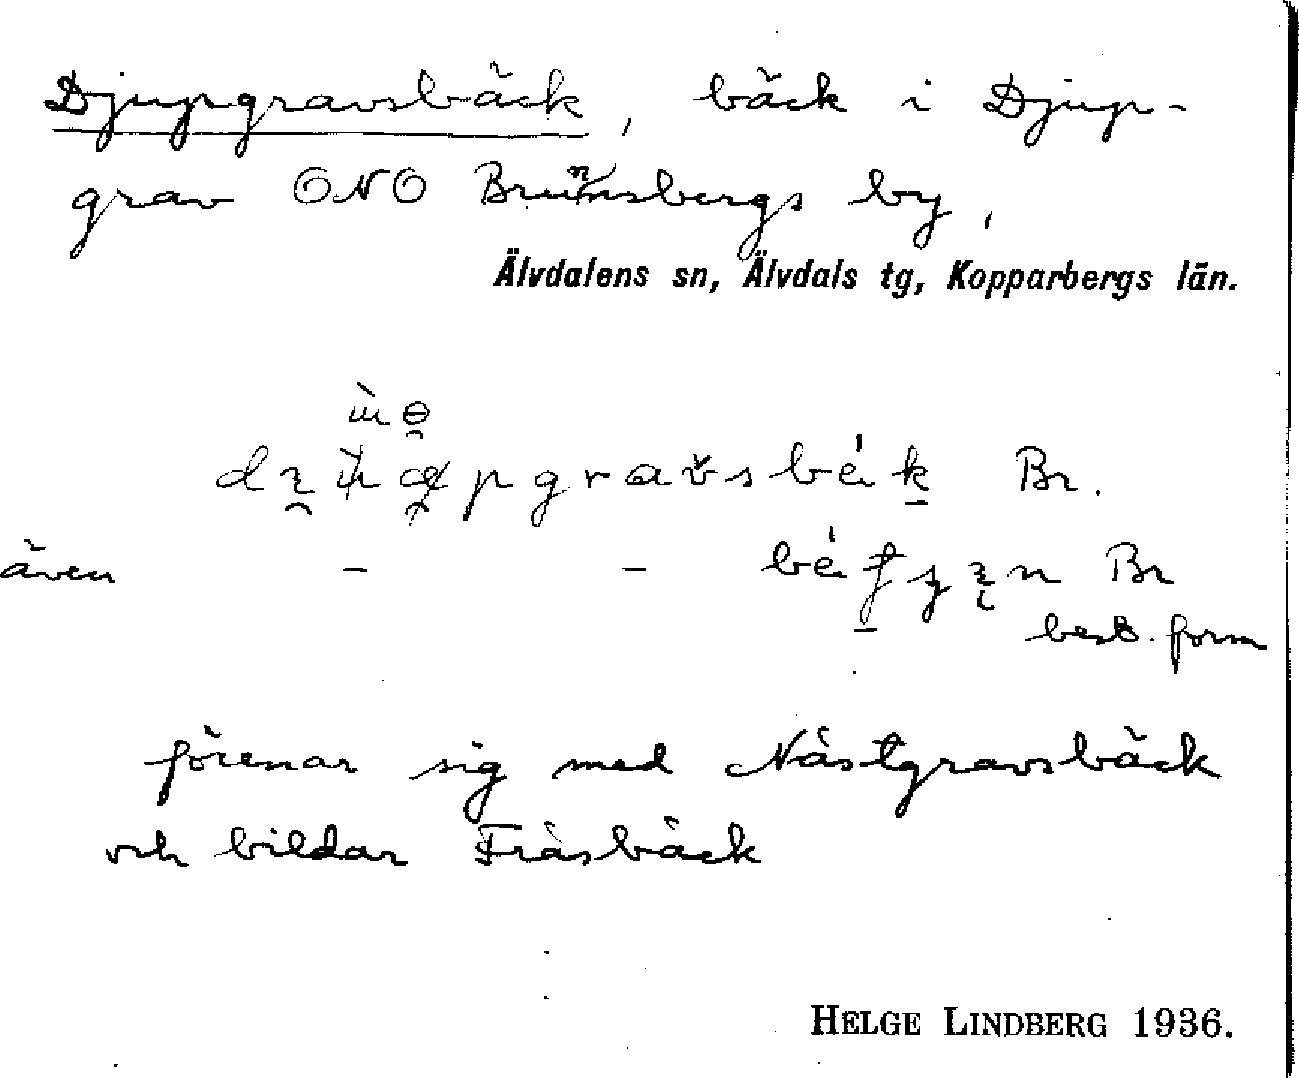 Djupgravsbäck, bäck i Djup-
grav ONO Brunnsbergs by,
Älvdalens sn, Älvdals tg, Kopparbergs län.
Br.
även - - Br
best. form
förenar sig med Nästgravsbäck
och bildar Fräsbäck
HELGE LINDBERG 1936.